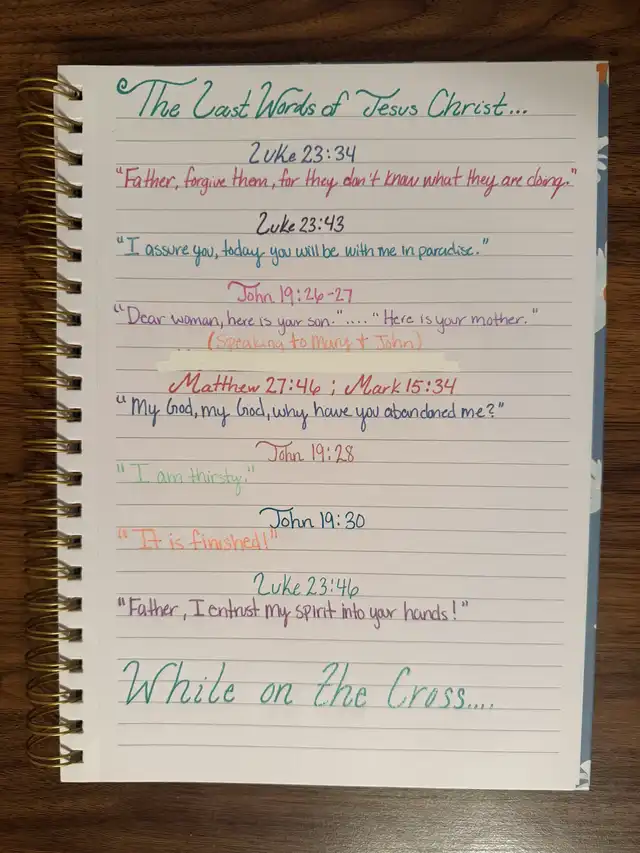 The Last Words of Jesus Christ...
Luke 23:34
"Father, forgive them, for they don't know what they are doing."
Luke 23:43
"I assure you, today you will be with me in paradise."
John 19:26-27
"Dear woman, here is your son.".... "Here is your mother."
(Speaking to Mary + John)
Matthew 27:46 ; Mark 15:34
"My God, my God, why have you abandoned me?"
John 19:28
"I am thirsty."
John 19:30
"It is finished!"
Luke 23:46
"Father, I entrust my spirit into your hands!"
While on the Cross....